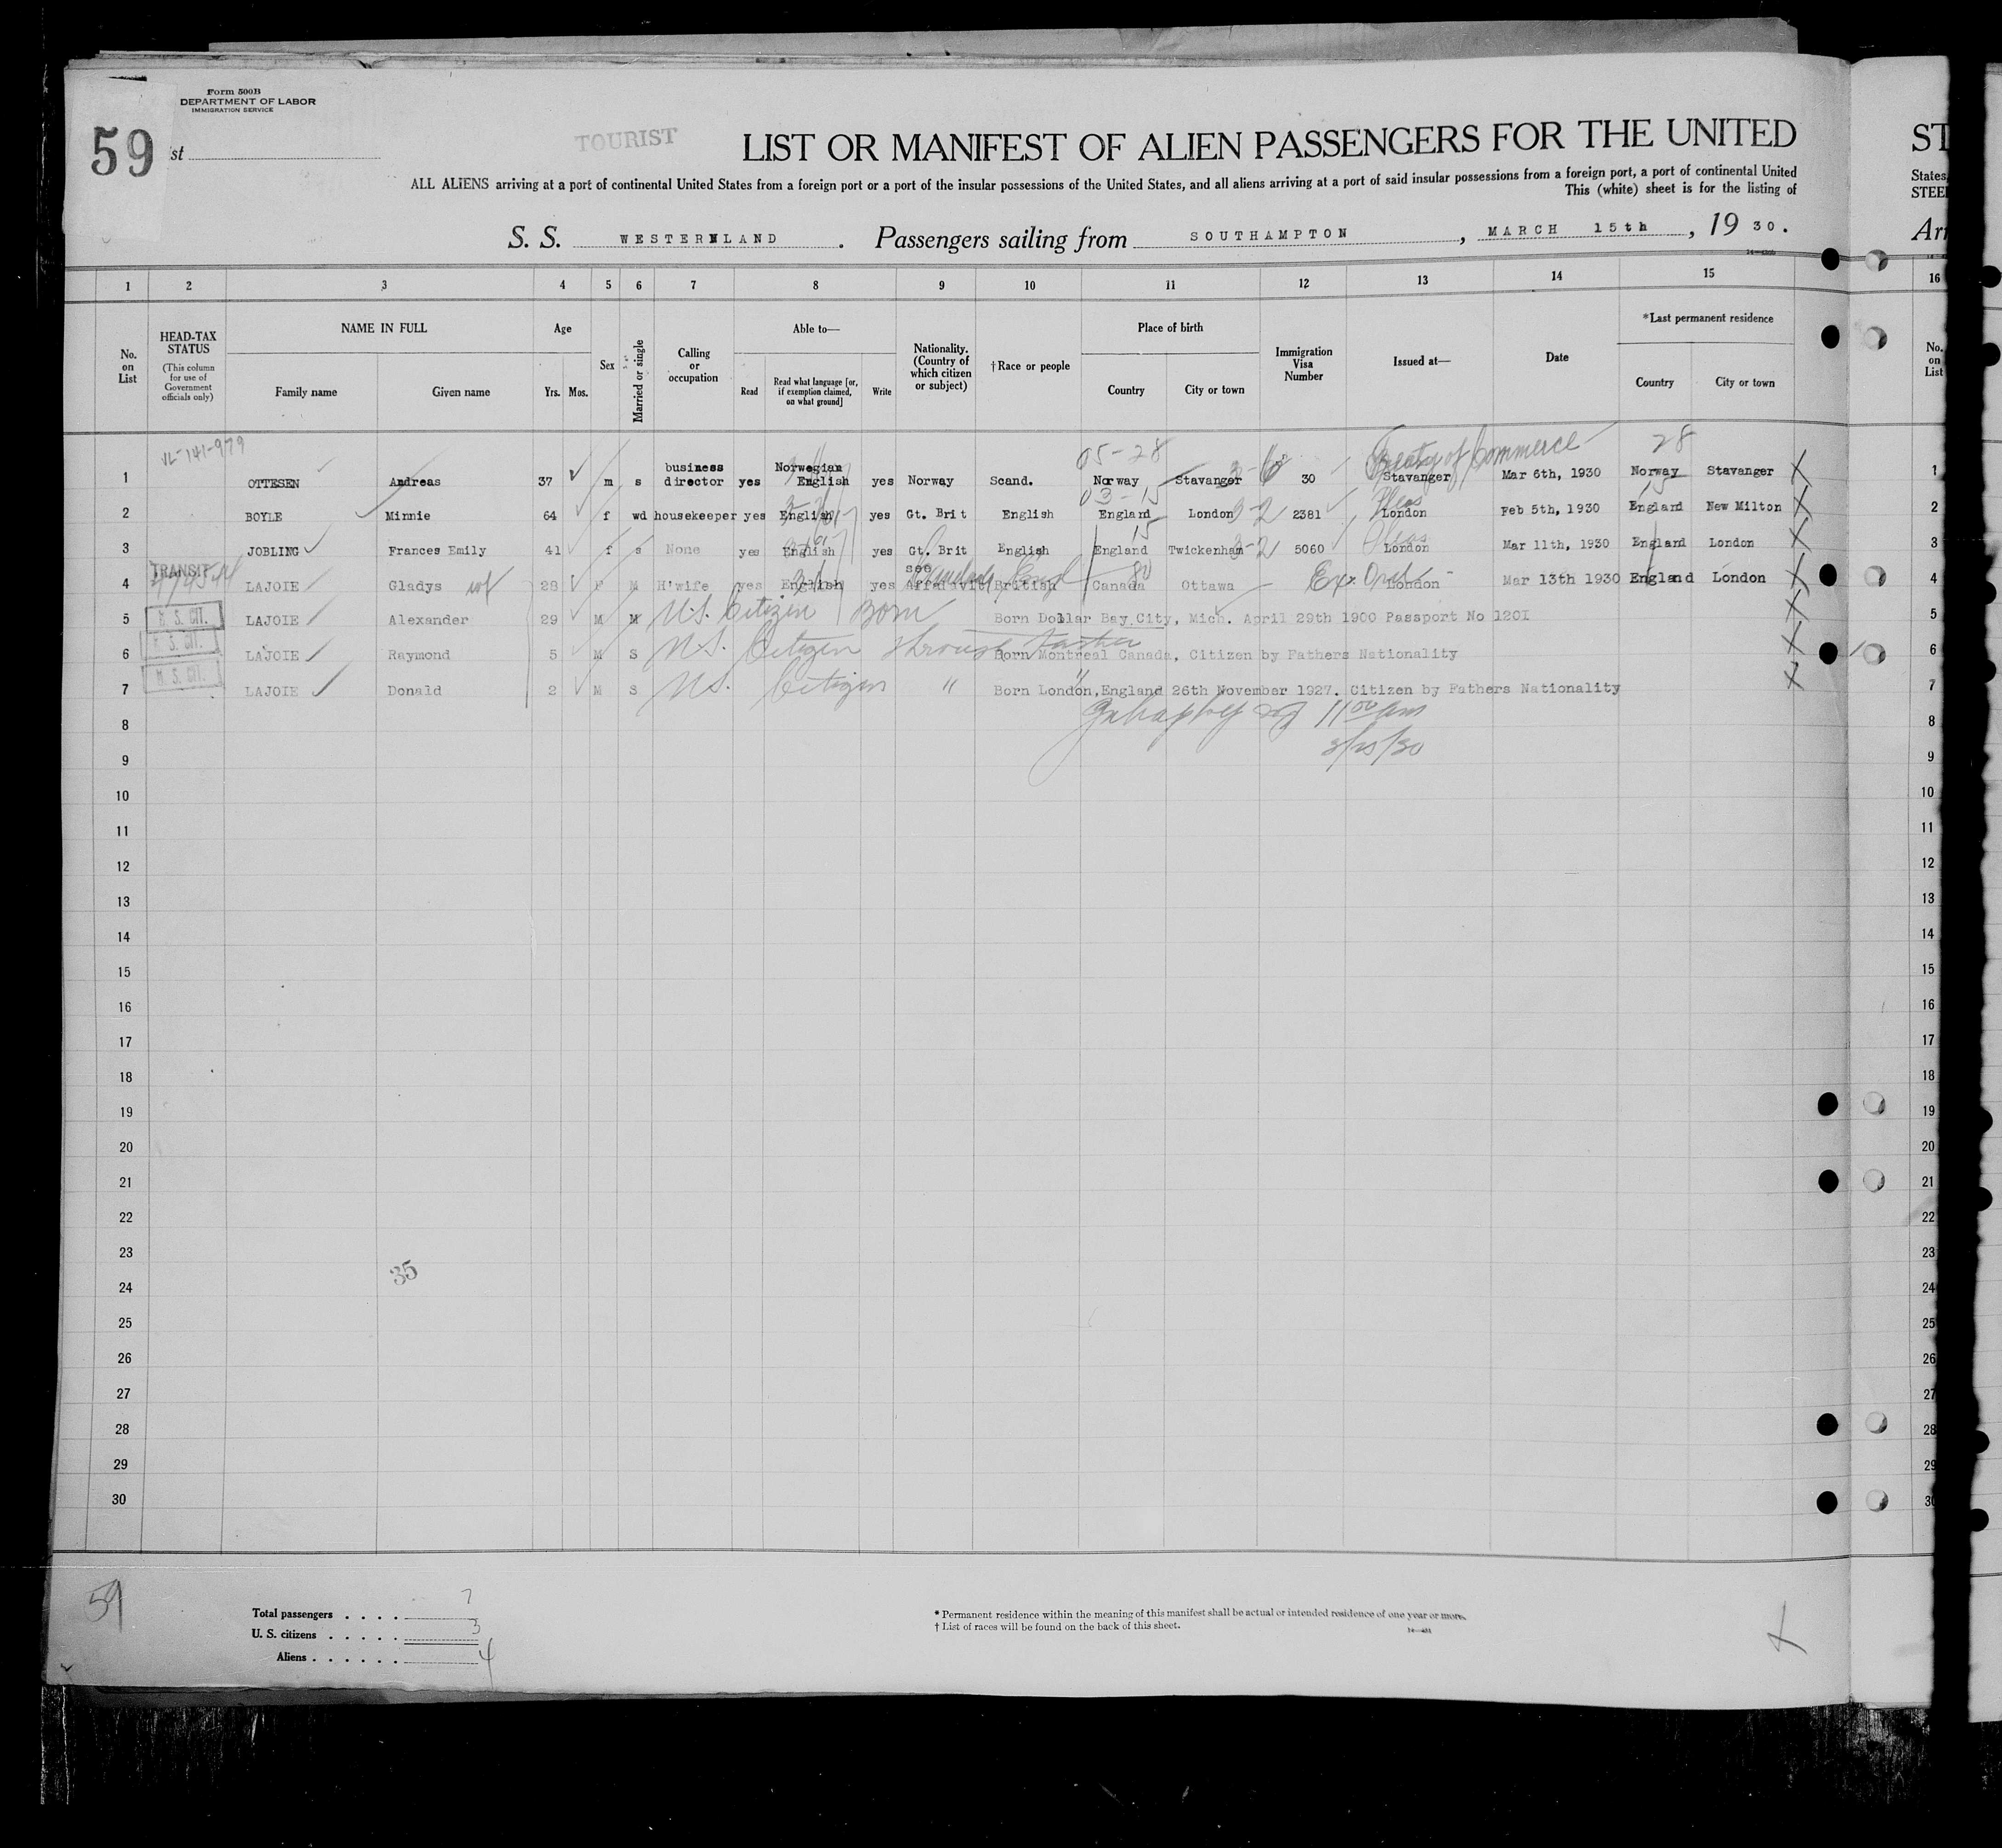 Form 500B
DEPARTMENT OF LABOR
IMMIGRATION SERVICE
59 st
TOURIST
LIST OR MANIFEST OF ALIEN PASSENGERS FOR THE UNITED
ST
ALL ALIENS arriving at a port of continental United States from a foreign port or a port of the insular possessions of the United States, and all aliens arriving at a port of said insular possessions from a foreign port, a port of continental United
States,
This (white) sheet is for the listing of
STEE
S. S. WESTERNLAND . Passengers sailing from SOUTHAMPTON , MARCH 15th , 19 30.
Arr
1 2 3 4 5 6 7 8 9 10 11 12 13 14 15 16
No. on List
HEAD-TAX STATUS
(This column for use of Government officials only)
NAME IN FULL
Family name Given name
Age
Yrs. Mos.
Sex
Married or single
Calling or occupation
Able to—
Read
Read what language [or, if exemption claimed, on what ground]
Write
Nationality. (Country of which citizen or subject)
†Race or people
Place of birth
Country City or town
Immigration Visa Number
Issued at—
Date
*Last permanent residence
Country City or town
No. on List
VL-141-979 05-28 Treaty of Commerce 28
1 OTTESEN Andreas 37 m s business director yes Norwegian English yes Norway Scand. Norway Stavanger 3-6 30 Stavanger Mar 6th, 1930 Norway Stavanger 1
03-15 Pleas 15
2 BOYLE Minnie 64 f wd housekeeper yes English yes Gt. Brit English England London 3-2 2381 London Feb 5th, 1930 England New Milton 2
15 Pleas
3 JOBLING Frances Emily 41 f s None yes English yes Gt. Brit English England Twickenham 3-2 5060 London Mar 11th, 1930 England London 3
TRANSIT
4 LAJOIE Gladys wf 28 F M H'wife yes English yes see Affadavit British Canada Ottawa Ex. Oral London Mar 13th 1930 England London 4
5 U. S. CIT. LAJOIE Alexander 29 M M U.S. Citizen Born Born Dollar Bay City, Mich. April 29th 1900 Passport No 1201 5
6 U. S. CIT. LAJOIE Raymond 5 M S U.S. Citizen through father Born Montreal Canada, Citizen by Fathers Nationality 6
7 U. S. CIT. LAJOIE Donald 2 M S U.S. Citizen " " Born London, England 26th November 1927. Citizen by Fathers Nationality 7
8 11 00 am 8
3/25/30
9 9
10 10
11 11
12 12
13 13
14 14
15 15
16 16
17 17
18 18
19 19
20 20
21 21
22 22
23 23
35
24 24
25 25
26 26
27 27
28 28
29 29
30 30
59
Total passengers . . . . 7
U. S. citizens . . . . . 3
Aliens . . . . . . 4
* Permanent residence within the meaning of this manifest shall be actual or intended residence of one year or more.
† List of races will be found on the back of this sheet.